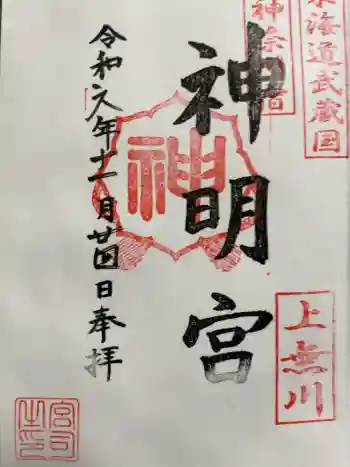 東海道武蔵国
神奈
上無川
神明宮
神
令和元年十一月廿四日奉拝
宮司
之印